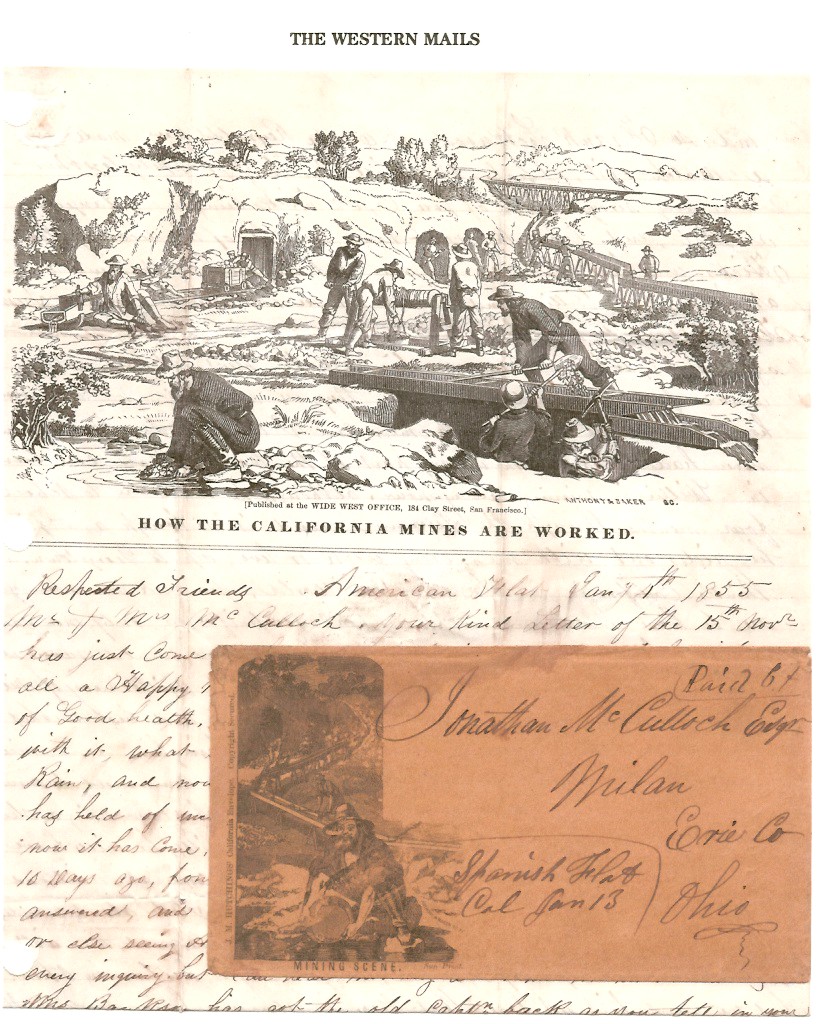 THE WESTERN MAILS
ANTHONY & BAKER SC.
[Published at the WIDE WEST OFFICE, 184 Clay Street, San Francisco.]
HOW THE CALIFORNIA MINES ARE WORKED.
Respected Friends American Flat Jany 1th 1855
Mr & Mrs McCulloch. Your Kind Letter of the 15th Novr
has just Come
all a Happy
of Good health,
with it, what
Rain, and now
has held of
now it has Come,
10 Days ago, from
answered, and
or else seeing
every inquiry but
has got the old Captn back as you tell in your
Paid 6
Jonathan McCulloch Esqr
Milan
Erie Co
Ohio
Spanish Flat
Cal Jan 13
J. M. HUTCHINGS' California Envelope. Copyright Secured.
MINING SCENE.